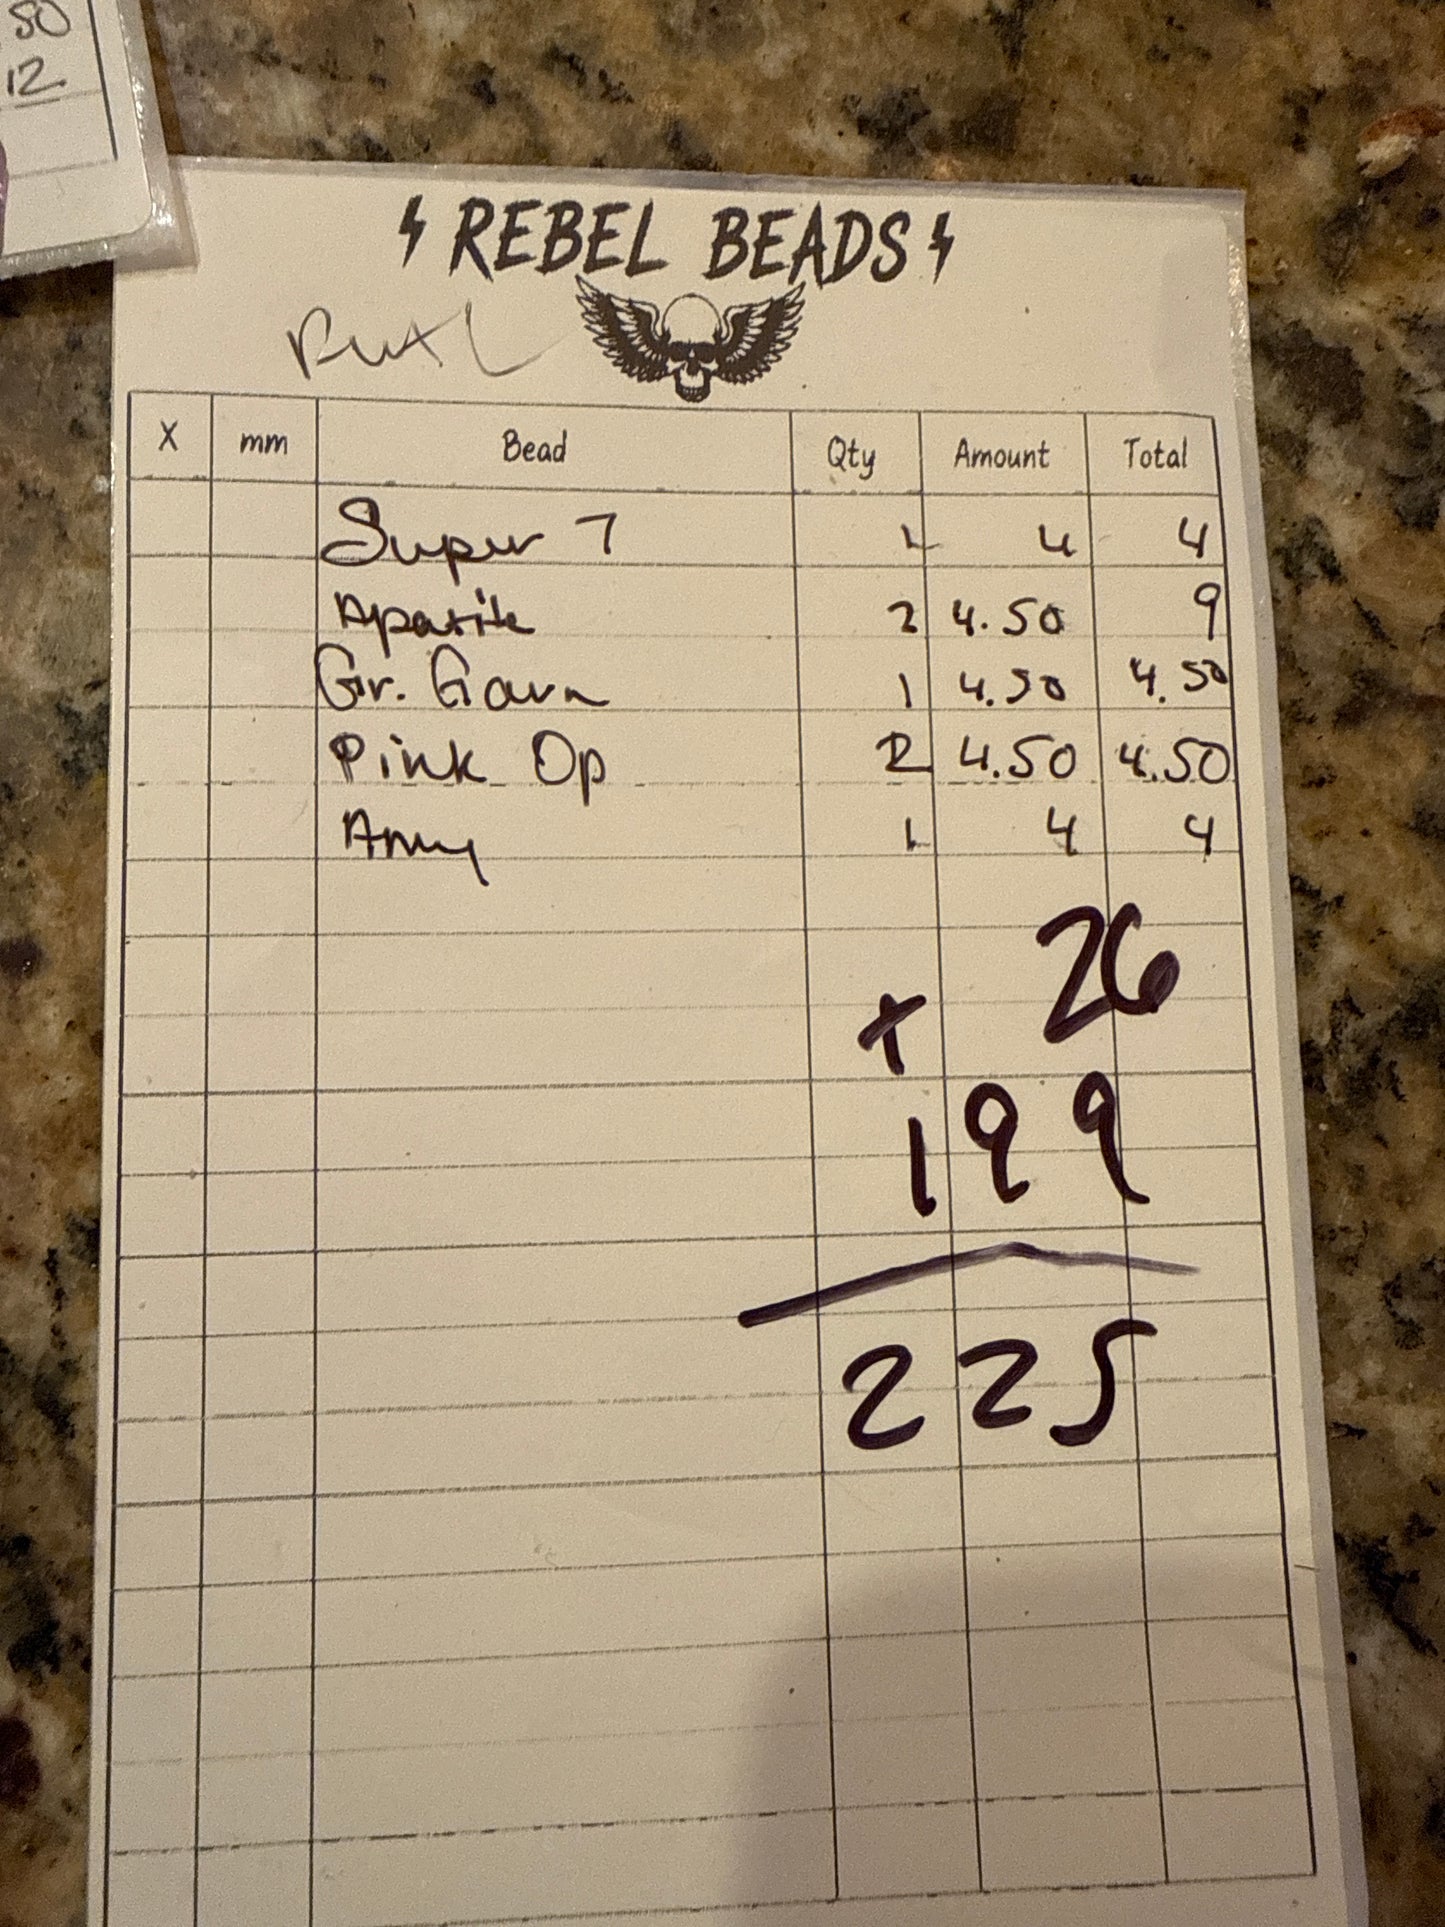 50
12
REBEL BEADS
X mm Bead Qty Amount Total
Super 7 1 4 4
Apatite 2 4.50 9
Gr. Garn 1 4.50 4.50
Pink Op 2 4.50 4.50
Amy 1 4 4
26
+
199
225